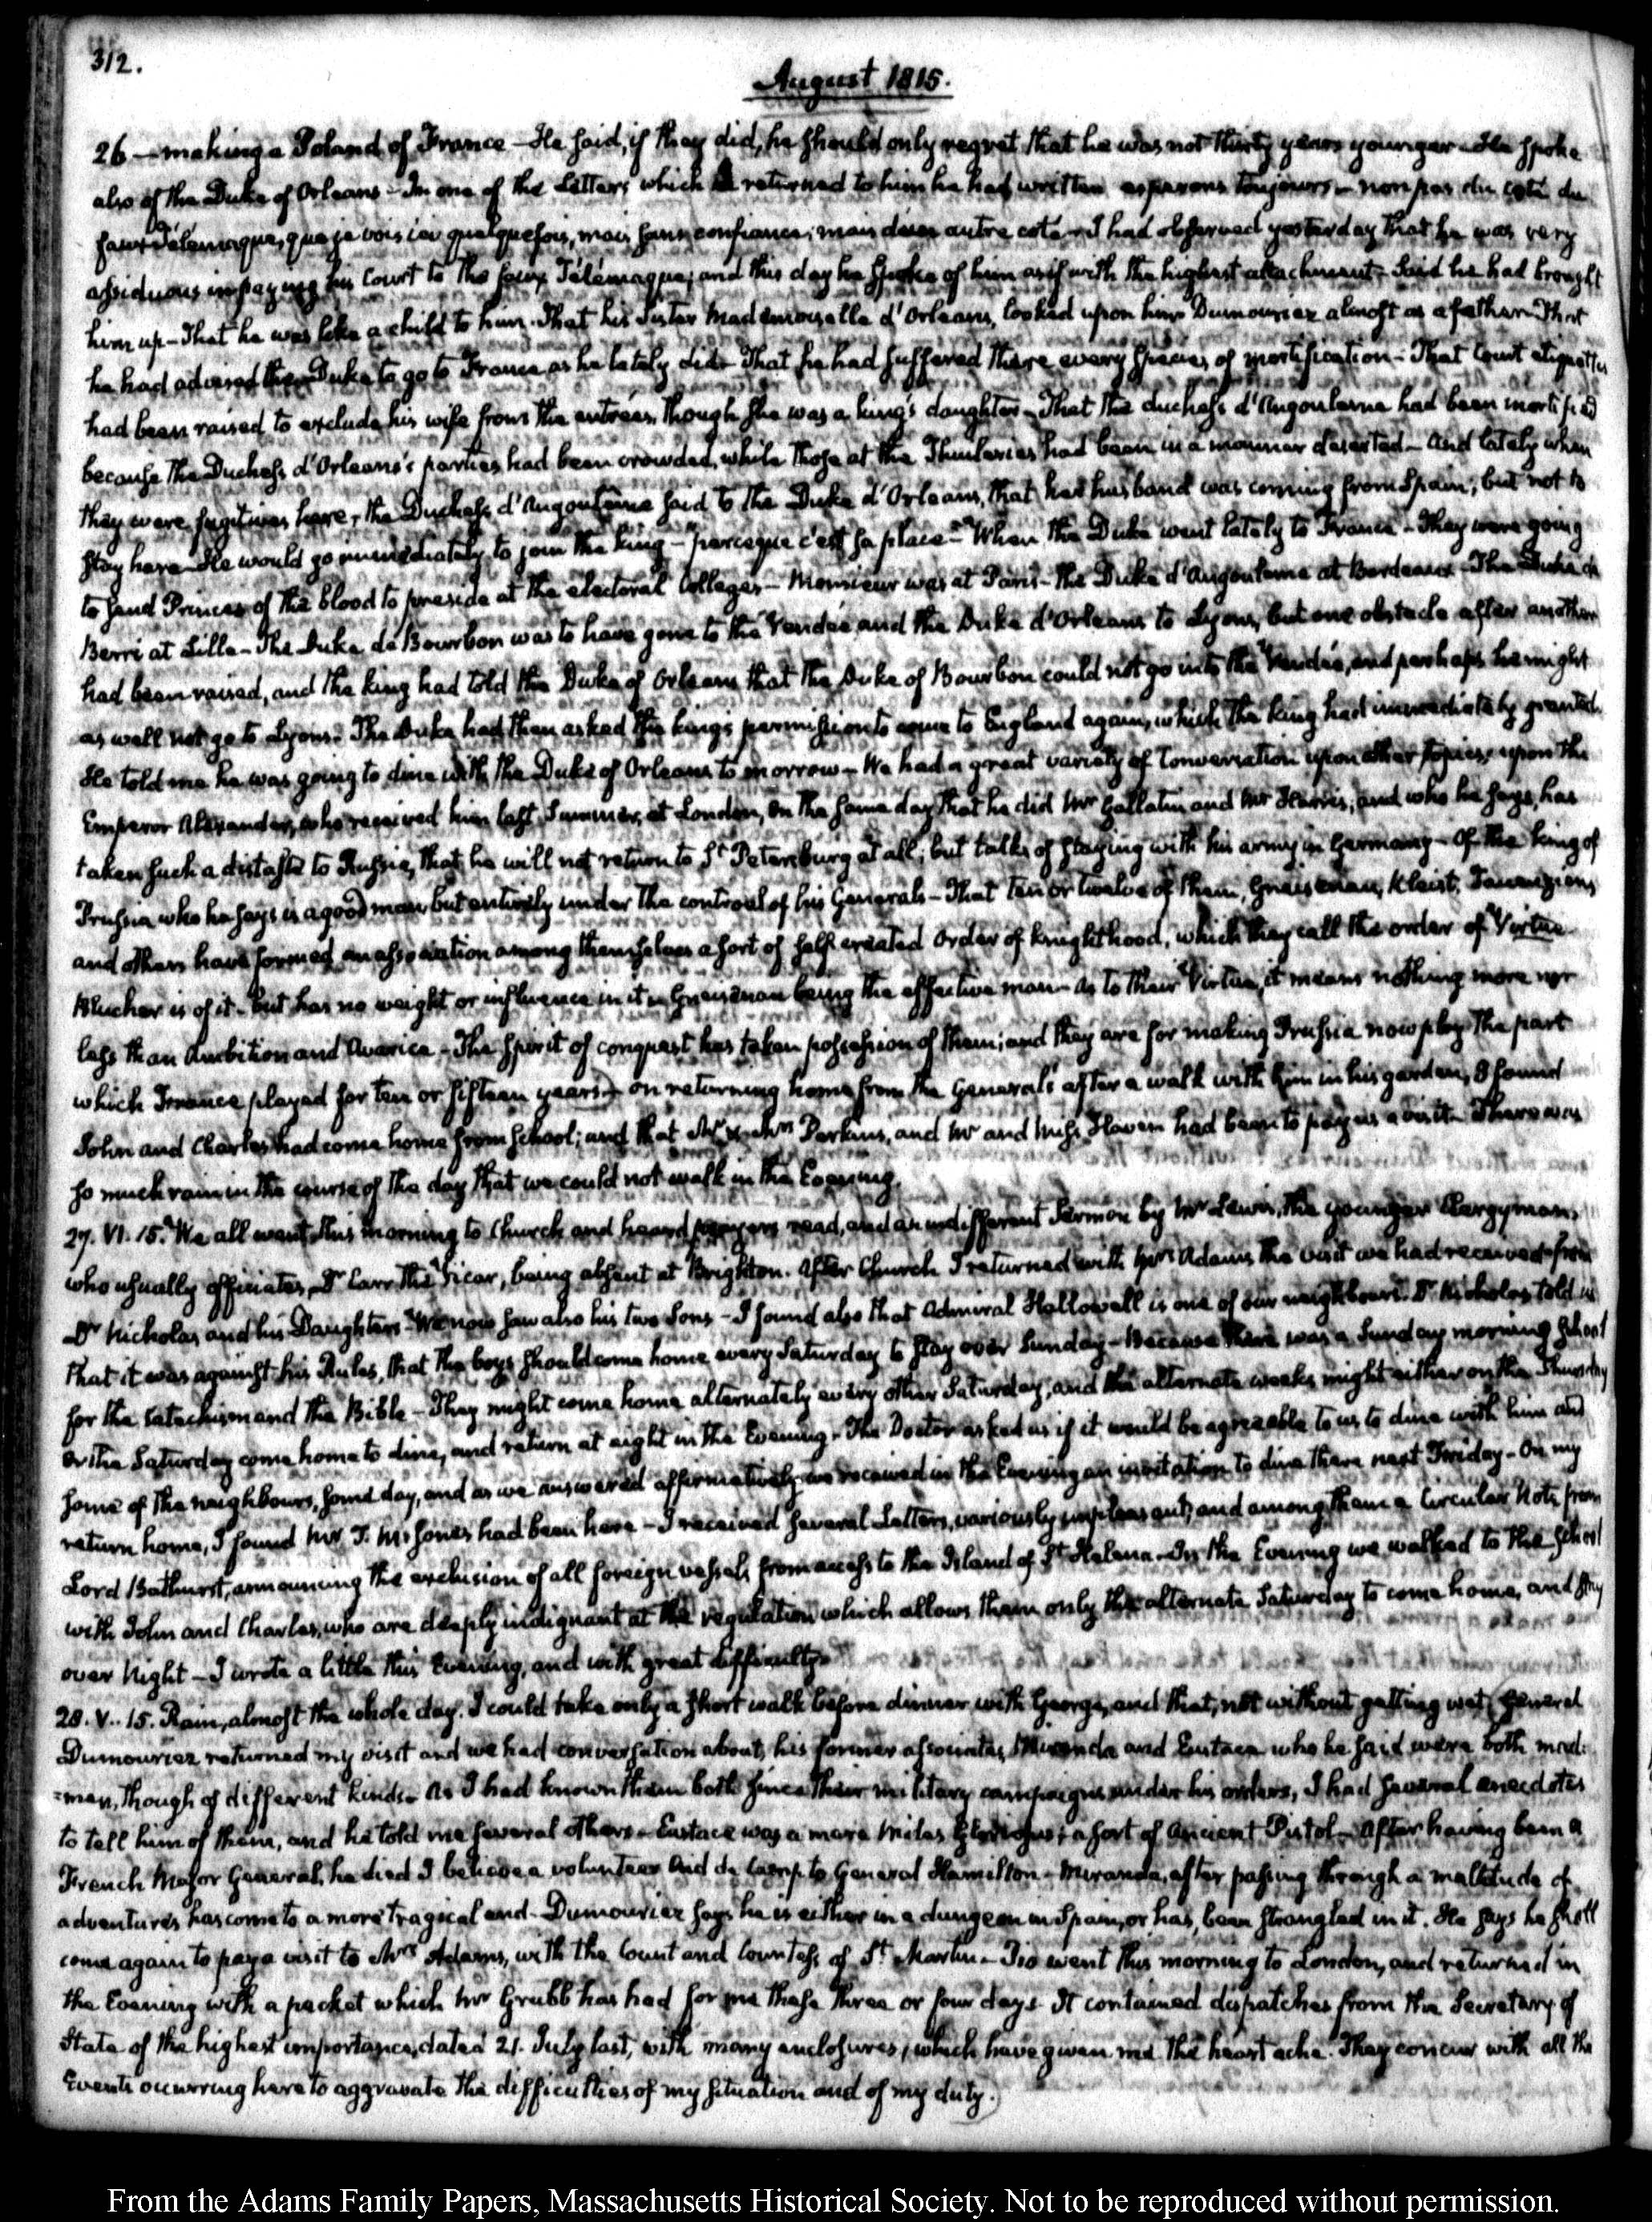 312.
August 1815.
26 — making a Poland of France — He said, if they did, he should only regret that he was not thirty years younger. He spoke
also of the Duke of Orleans — In one of the Letters which I returned to him he had written esperons toujours — non pas du coté du
faux Télémaque, que je vois ici quelquefois, mais sans confiance; mais d'un autre coté — I had observed yesterday that he was very
assiduous in paying his Court to the faux Télémaque; and this day he spoke of him as if with the highest attachment — Said he had brought
him up — That he was like a child to him. That his Sister Mademoiselle d'Orleans, looked upon him Dumouriez almost as a father — That
he had advised the Duke to go to France as he lately did — That he had suffered there every species of mortification — That Court etiquettes
had been raised to exclude his wife from the entrées, though she was a king's daughter — That the duchess d'Angouleme had been mortified
because the Duchess d'Orleans's parties had been crowded, while those at the Thuileries had been in a manner deserted — And lately when
they were fugitives here, the Duchess d'Angouleme said to the Duke d'Orleans, that her husband was coming from Spain; but not to
stay here — He would go immediately to join the king — "parceque c'est sa place" — When the Duke went lately to France — They were going
to send Princes of the blood to preside at the electoral Colleges — Monsieur was at Paris — the Duke d'Angouleme at Bordeaux — The Duke de
Berri at Lille — The Duke de Bourbon was to have gone to the Vendée and the Duke d'Orleans to Lyons, but one obstacle after another
had been raised, and the king had told the Duke of Orleans that the Duke of Bourbon could not go into the Vendée, and perhaps he might
as well not go to Lyons. The Duke had then asked the king's permission to come to England again, which the king had immediately granted.
He told me he was going to dine with the Duke of Orleans to morrow — We had a great variety of Conversation upon other topics; upon the
Emperor Alexander, who received him last Summer, at London, on the same day that he did Mr Gallatin and Mr Harris, and who he says, has
taken such a distaste to Russia, that he will not return to St Petersburg at all; but talks of staying with his army in Germany — Of the king of
Prussia who he says is a good man but entirely under the controul of his Generals — That ten or twelve of them, Gneisenau, Kleist, Tauenzien,
and others have formed an association among themselves a sort of self created order of knighthood, which they call the order of Virtue
Blucher is of it — but has no weight or influence in it — Gneisenau being the effective man — As to their Virtue, it means nothing more nor
less than Ambition and Avarice — The Spirit of conquest has taken possession of them; and they are for making Prussia now play the part
which France played for ten or fifteen years — On returning home from the General's after a walk with him in his garden, I found
John and Charles had come home from School; and that Mr & Mrs Perkins, and Mr and Miss Haven had been to pay us a visit — There was
so much rain in the course of the day that we could not walk in the Evening.
27. VI. 15. We all went this morning to Church and heard prayers read, and an indifferent Sermon by Mr Lewis, the younger Clergyman,
who usually officiates, Dr Carr the Vicar, being absent at Brighton. After Church I returned with Mrs Adams the visit we had received from
Dr Nicholas and his Daughters — We now saw also his two Sons — I found also that Admiral Hallowell is one of our neighbours. Dr Nicholas told us
that it was against his Rules, that the boys should come home every Saturday to stay over Sunday — Because there was a Sunday morning School
for the Catechism and the Bible — They might come home alternately every other Saturday, and the alternate weeks might either on the Thursday
or the Saturday come home to dine, and return at eight in the Evening. The Doctor asked us if it would be agreeable to us to dine with him and
some of the neighbours, some day, and as we answered affirmatively we received in the Evening an invitation to dine there next Friday — On my
return home, I found Mr T. M. Jones had been here — I received several Letters, variously unpleasant; and among them a Circular Note from
Lord Bathurst, announcing the exclusion of all foreign vessels from access to the Island of St Helena — In the Evening we walked to the School
with John and Charles, who are deeply indignant at the regulation which allows them only the alternate Saturday to come home, and stay
over Night — I wrote a little this Evening, and with great difficulty.
28. V.. 15. Rain, almost the whole day. I could take only a short walk before dinner with George, and that, not without getting wet. General
Dumouriez returned my visit and we had conversation about, his former associates, Miranda and Eustace who he said were both mad-
=men, though of different kinds. As I had known them both since their military campaigns under his orders, I had several anecdotes
to tell him of them, and he told me several others — Eustace was a mere Miles Gloriosus; a sort of Ancient Pistol — After having been a
French Major General, he died I believe a volunteer Aid de Camp to General Hamilton — Miranda, after passing through a multitude of
adventures has come to a more tragical end — Dumouriez says he is either in a dungeon in Spain, or has, been strangled in it. He says he shall
come again to pay a visit to Mrs Adams, with the Count and Countess of St Martin — Tio went this morning to London, and returned in
the Evening with a packet which Mr Grubb has had for me these three or four days. It contained dispatches from the Secretary of
State of the highest importance, dated 21. July last, with many enclosures, which have given me the heart ache. They concur with all the
Events occurring here to aggravate the difficulties of my situation and of my duty.
From the Adams Family Papers, Massachusetts Historical Society. Not to be reproduced without permission.